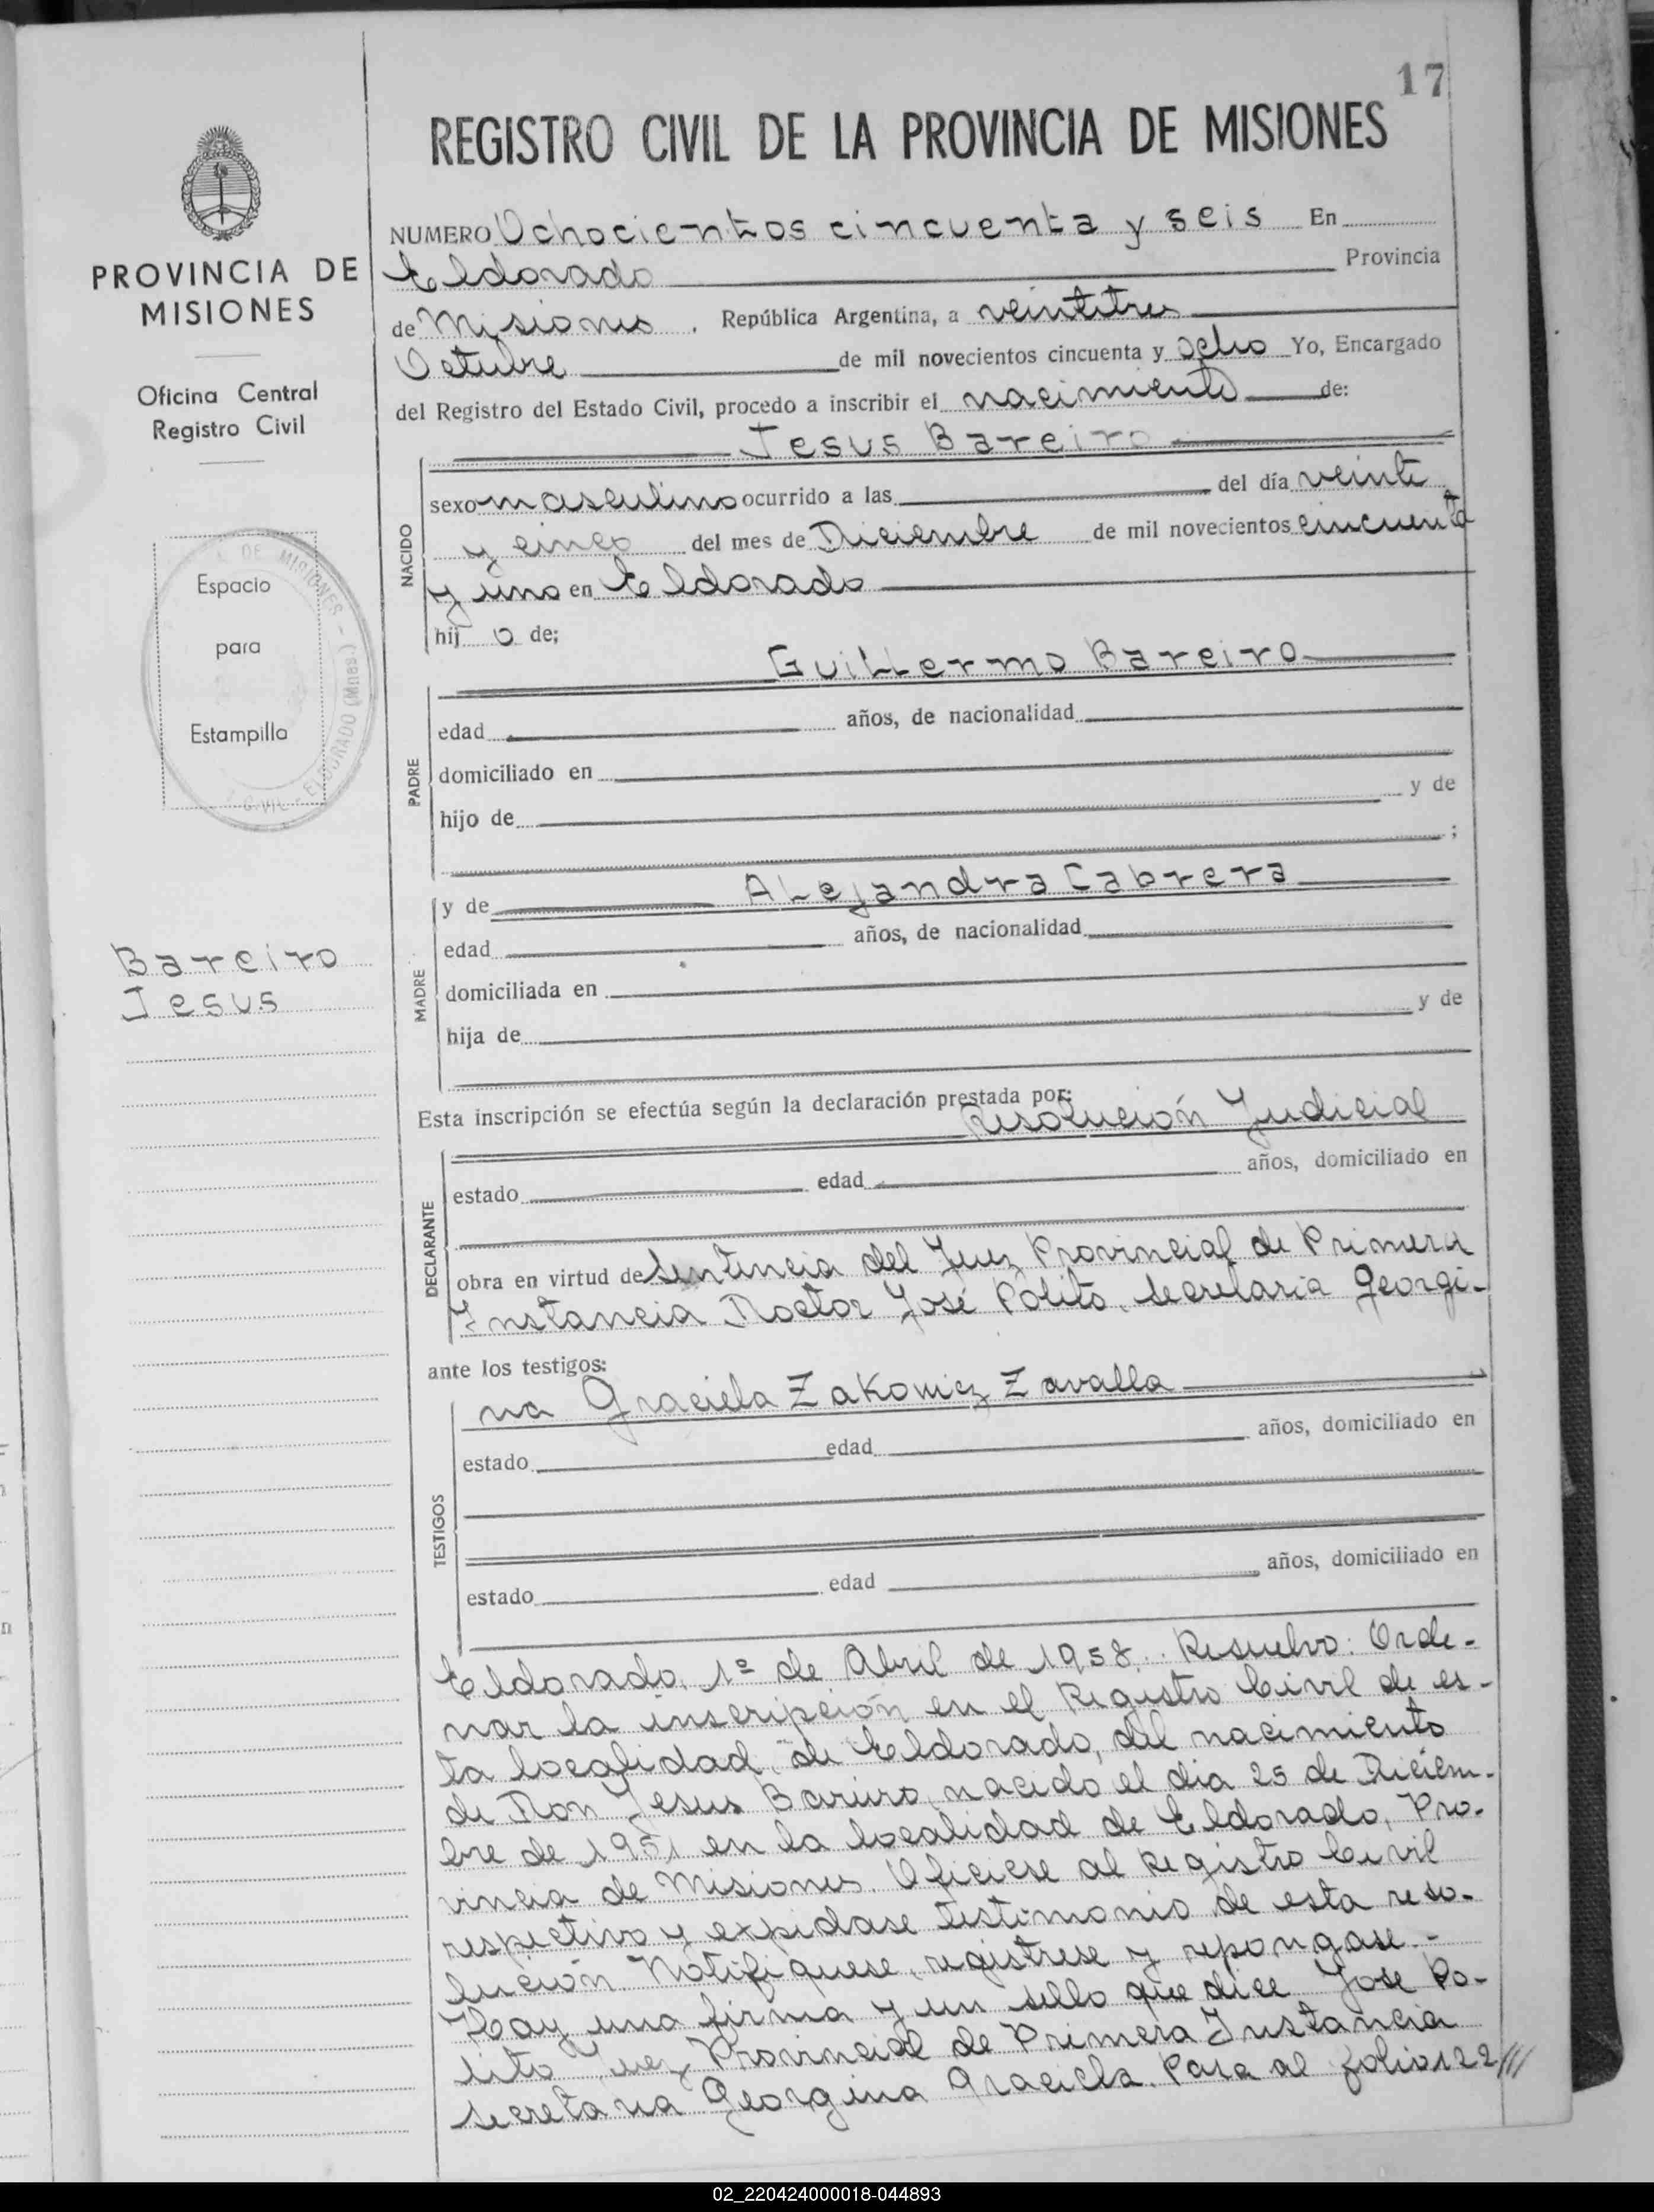 17
REGISTRO CIVIL DE LA PROVINCIA DE MISIONES
PROVINCIA DE
MISIONES
Oficina Central
Registro Civil
DE MISIONES - ELDORADO (Mnes.)
Espacio
para
Estampilla
Bareiro
Jesus
NUMERO Ochocientos cincuenta y seis En
Eldorado Provincia
de Misiones, República Argentina, a veintitres
Octubre de mil novecientos cincuenta y ocho Yo, Encargado
del Registro del Estado Civil, procedo a inscribir el nacimiento de:
Jesus Bareiro
NACIDO
sexo masculino ocurrido a las del día veinte
y cinco del mes de Diciembre de mil novecientos cincuenta
y uno en Eldorado
hij o de;
Guillermo Bareiro
PADRE
edad años, de nacionalidad
domiciliado en
hijo de y de
;
y de Alejandra Cabrera
MADRE
edad años, de nacionalidad
domiciliada en
hija de y de
Esta inscripción se efectúa según la declaración prestada por:
Resolución Judicial
DECLARANTE
estado edad años, domiciliado en
obra en virtud de Sentencia del Juez Provincial de Primera
Instancia Doctor José Polito, Secretaria Georgi-
ante los testigos:
na Graciela Zakowicz Zavalla
TESTIGOS
estado edad años, domiciliado en
estado edad años, domiciliado en
Eldorado, 1º de Abril de 1958. Resuelvo: Orde-
nar la inscripción en el Registro Civil de es-
ta localidad de Eldorado, del nacimiento
de Don Jesus Bareiro, nacido el dia 25 de Diciem-
bre de 1951 en la localidad de Eldorado, Pro-
vincia de Misiones. Oficiese al Registro Civil
respectivo y expidase testimonio de esta reso-
lución. Notifiquese, registrese y repongase.-
Hay una firma y un sello que dice José Po-
lito Juez Provincial de Primera Instancia
secretaria Georgina Graciela. Pasa al folio 122///
02_220424000018-044893